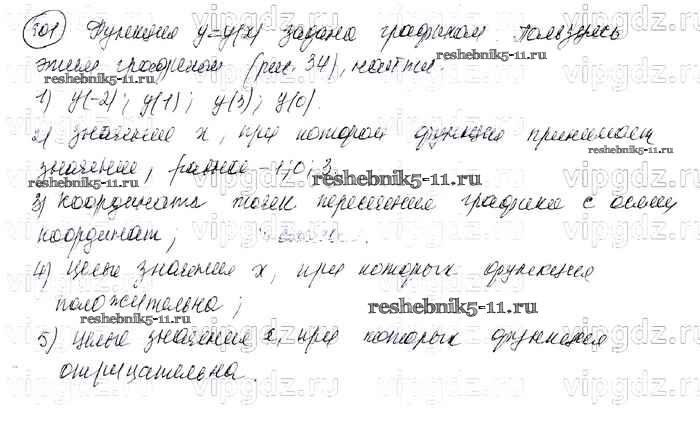 501 Функция y=y(x) задана графиком. Пользуясь
этим графиком (рис. 34), найти:
1) y(-2); y(1); y(3); y(0).
2) значение x, при котором функция принимает
значение, равное -1; 0; 3;
3) координаты точек пересечения графика с осями
координат;
4) целые значения x, при которых функция
положительна;
5) целые значения x, при которых функция
отрицательна.
reshebnik5-11.ru
reshebnik5-11.ru
reshebnik5-11.ru
reshebnik5-11.ru
reshebnik5-11.ru
reshebnik5-11.ru
vipgdz.ru